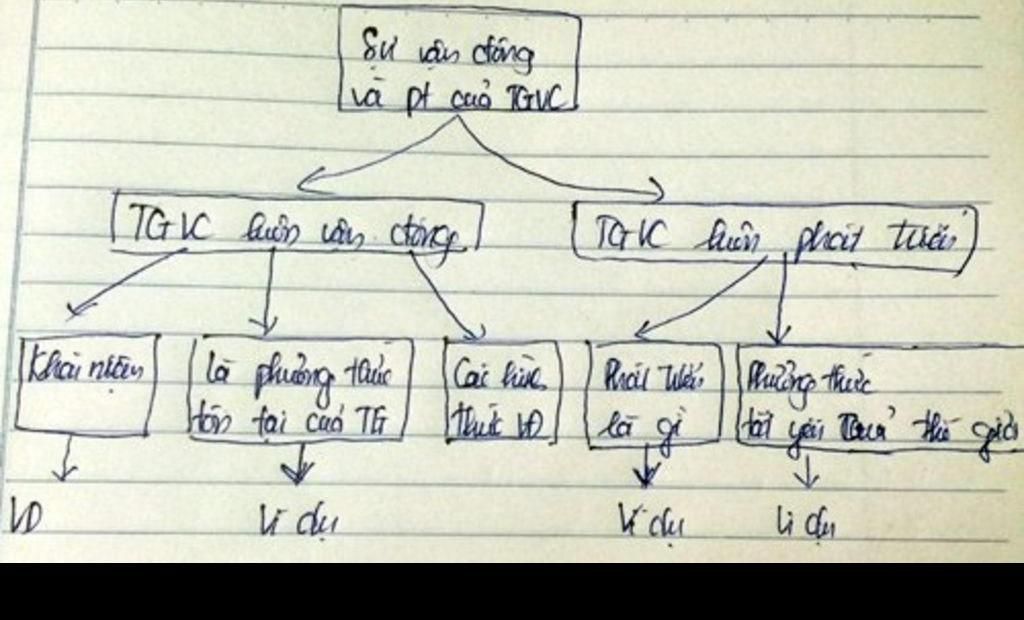 Sự vận động
và pt của TGVC
TGVC luôn vận động
TGVC luôn phát triển
Khái niệm
là phương thức
tồn tại của TG
Các hình
thức VĐ
Phát triển
là gì
Phương thức
tất yếu của thế giới
VD
Ví dụ
Ví dụ
Ví dụ